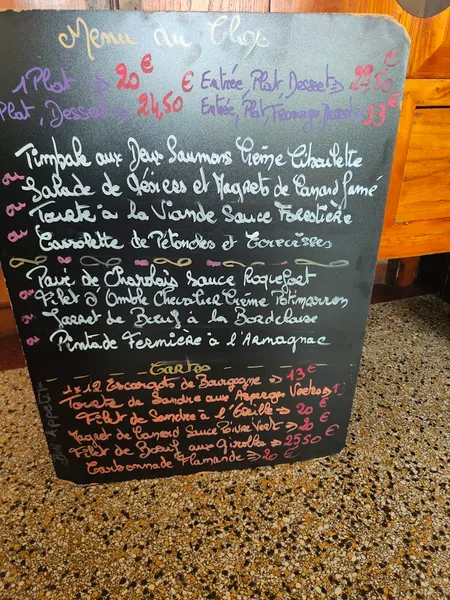 Menu du Chef
1 Plat => 20 €
Entrée, Plat Dessert => 29,50 €
Plat, Dessert => 24,50 €
Entrée, Plat, Fromage Dessert => 33 €
Timbale aux Deux Saumons Crème Ciboulette
ou Salade de Gésiers et Magrets de Canard fumé
ou Tourte à la Viande Sauce Forestière
ou Cassolette de Pétoncles et Ecrevisses
Pavé de Charolais Sauce Roquefort
ou Filet d'Omble Chevalier Crème Potimarron
ou Jarret de Bœuf à la Bordelaise
ou Pintade Fermière à l'Armagnac
Cartes
1 x 12 Escargots de Bourgogne => 13 €
Tourte de Sandre aux Asperges Vertes =>
Filet de Sandre à l'Oseille => 20 €
Magret de Canard Sauce Poivre Vert => 20 €
Filet de Bœuf aux Girolles => 25,50 €
Carbonnade Flamande => 20 €
Appétit